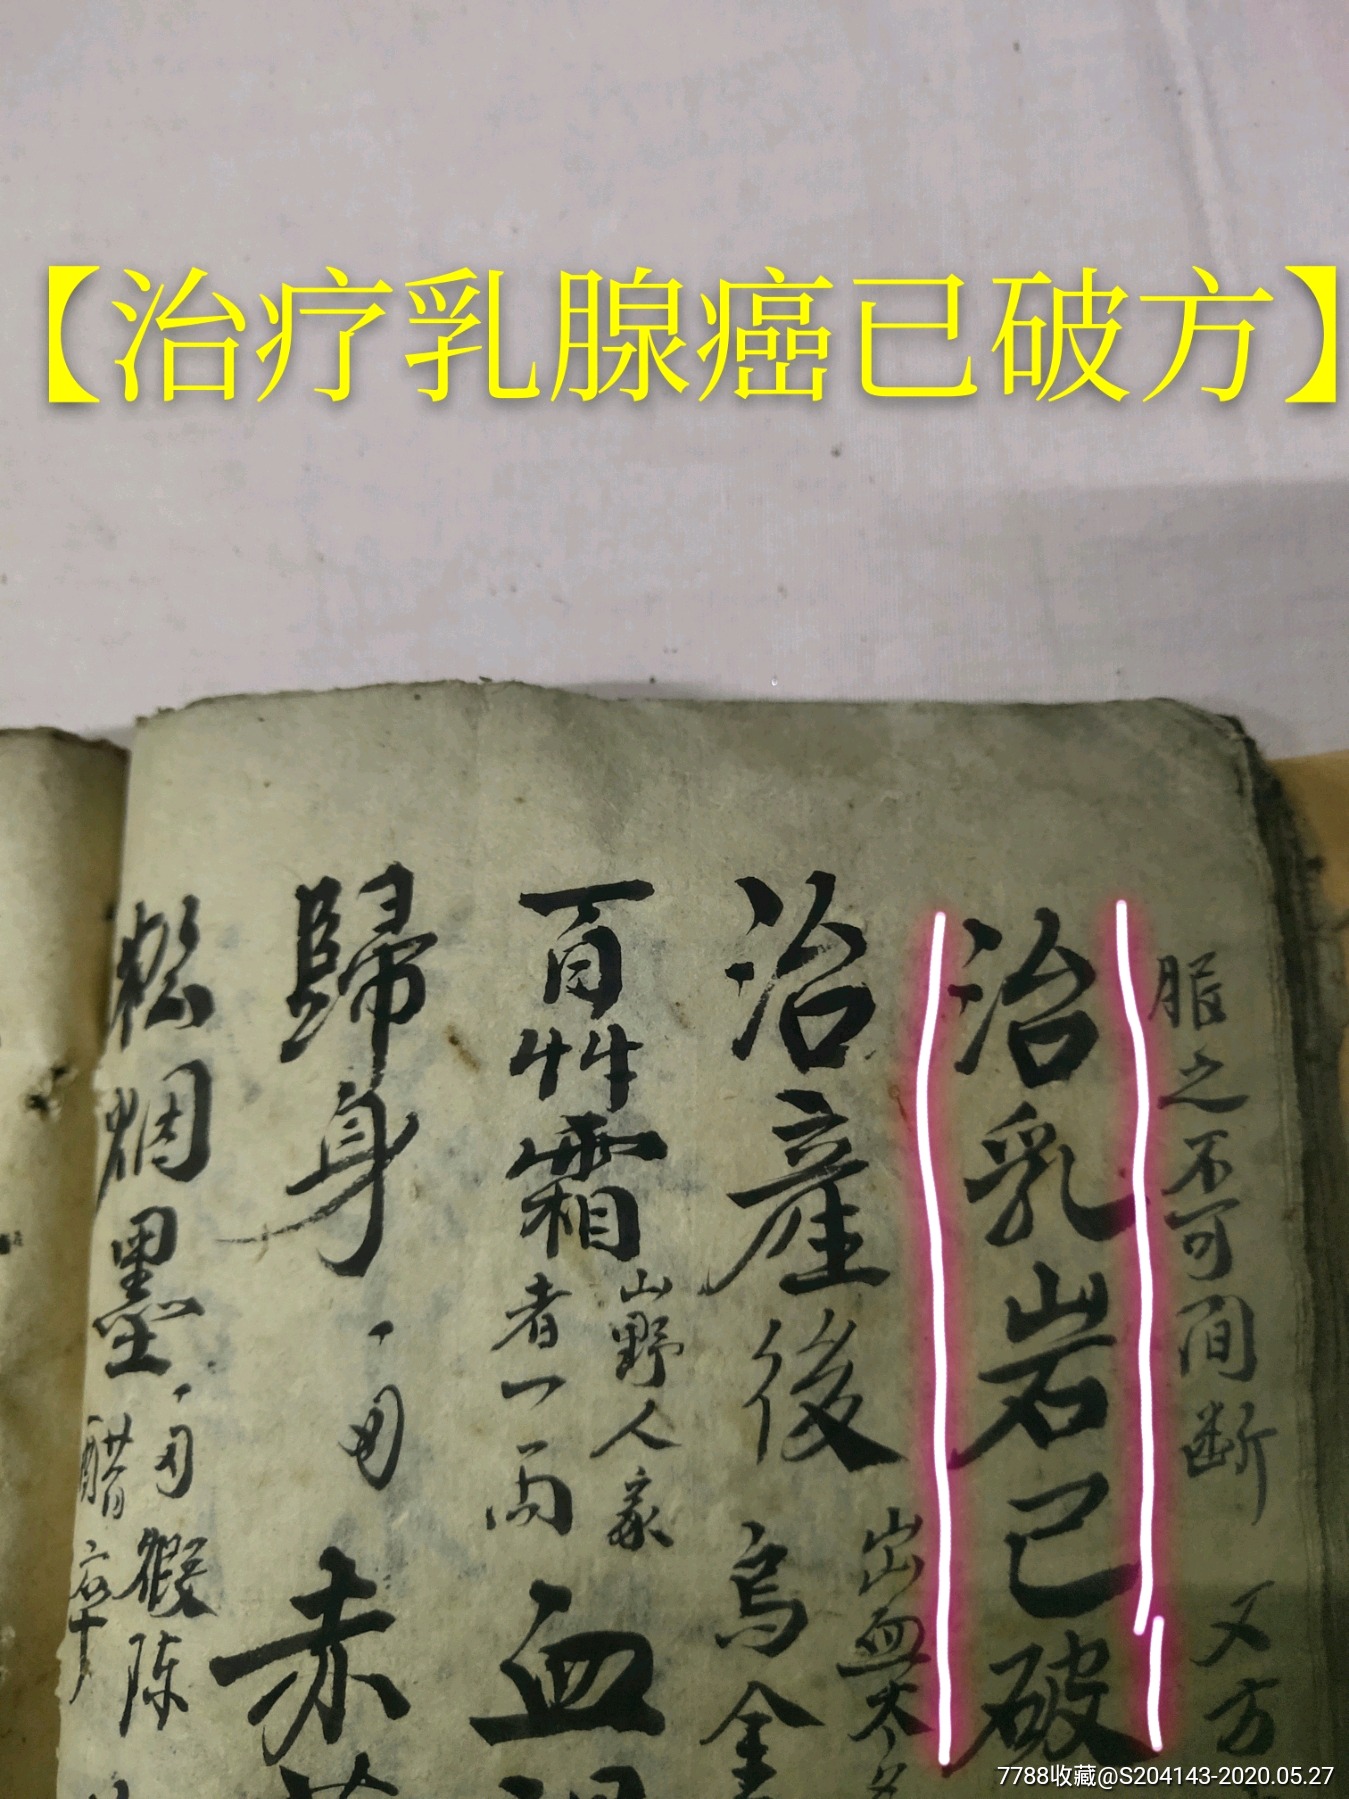 【治疗乳腺癌已破方】
服之不可间断 又方
治乳岩已破
治產後 出血太多
烏金
百艸霜 山野人家
者一両 血
歸身 、 赤
松烟墨 、
醋
7788收藏@S204143-2020.05.27